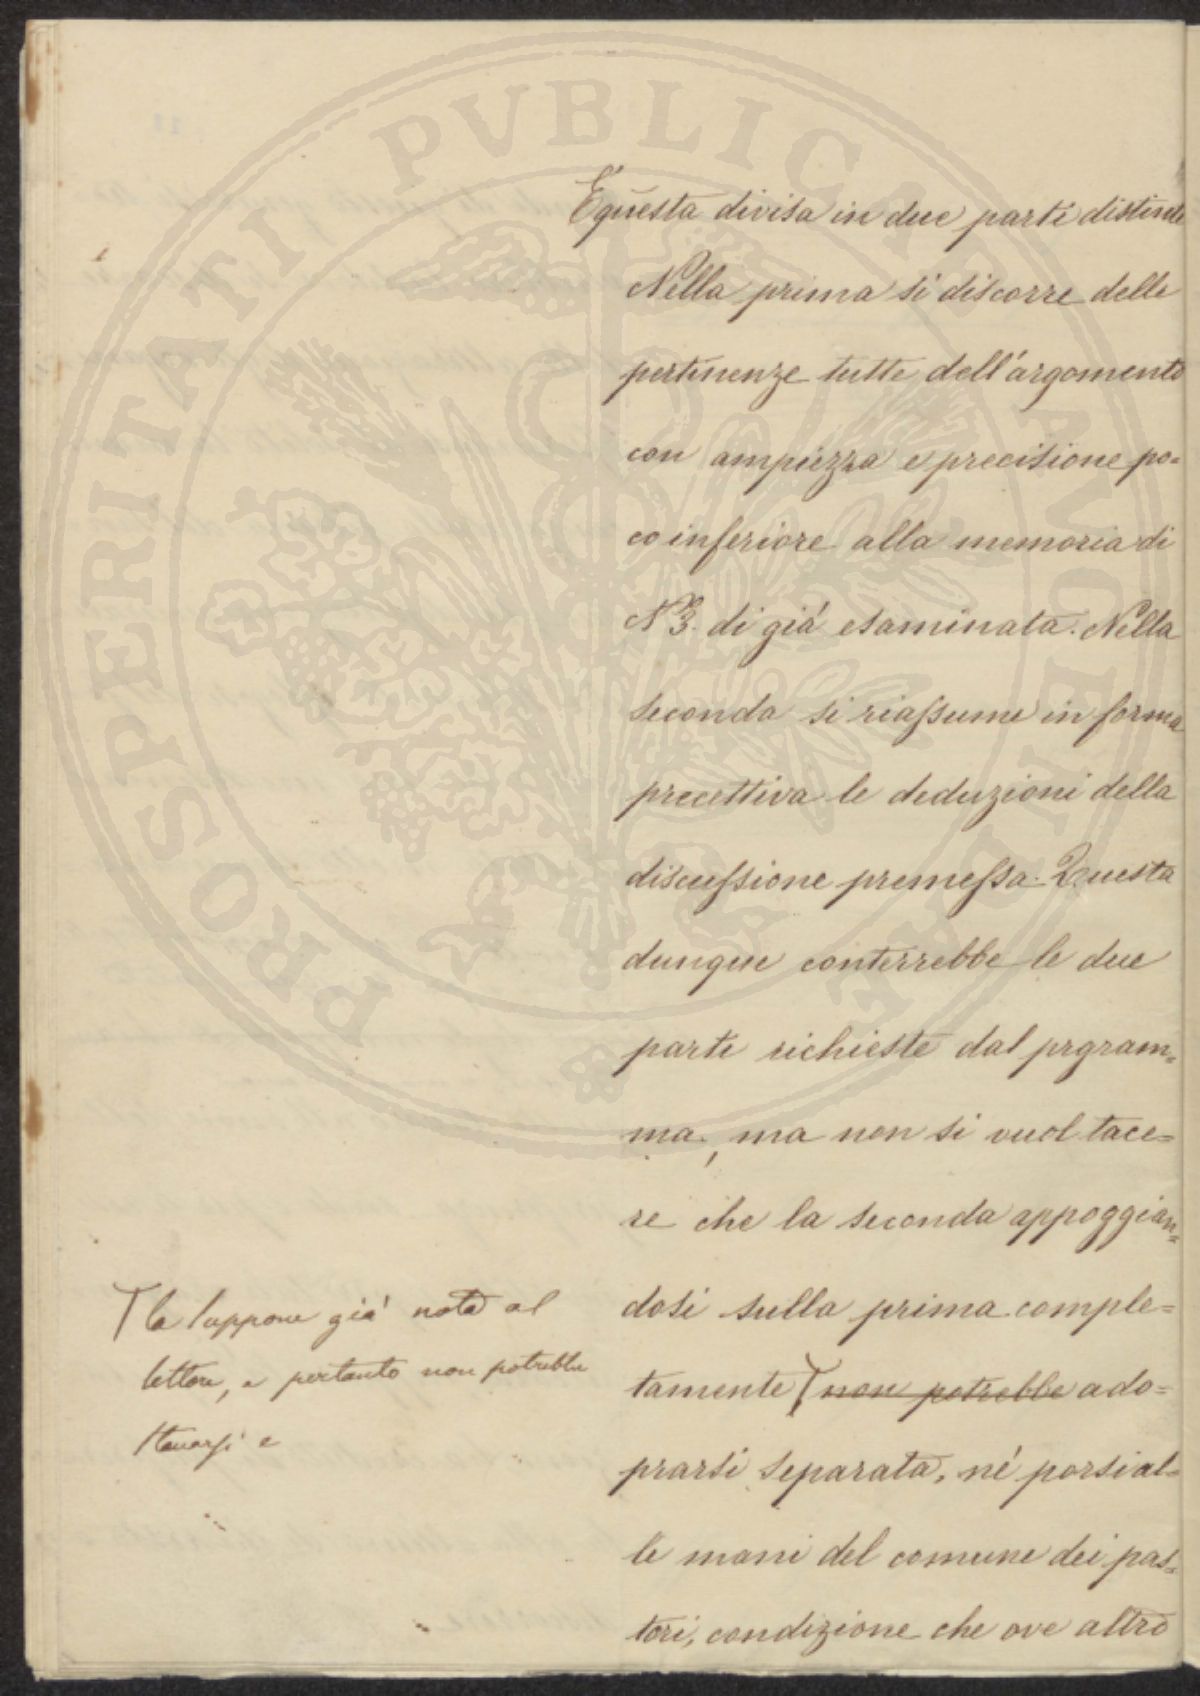 PROSPERITATI PVBLICAE AVGENDAE
È questa divisa in due parti distinte
Nella prima si discorre delle
pertinenze tutte dell'argomento
con ampiezza e precisione po=
co inferiore alla memoria di
N 3. di già esaminata. Nella
seconda si riassume in forma
precettiva le deduzioni della
discussione premessa. Questa
dunque conterrebbe le due
parti richieste dal prgram=
ma, ma non si vuol tace=
re che la seconda appoggian=
dosi sulla prima comple=
tamente non potrebbe ado=
prarsi separata, né porsi al=
le mani del comune dei pas=
tori, condizione che ove altro
la suppone già nota al
lettore, e pertanto non potrebbe
e